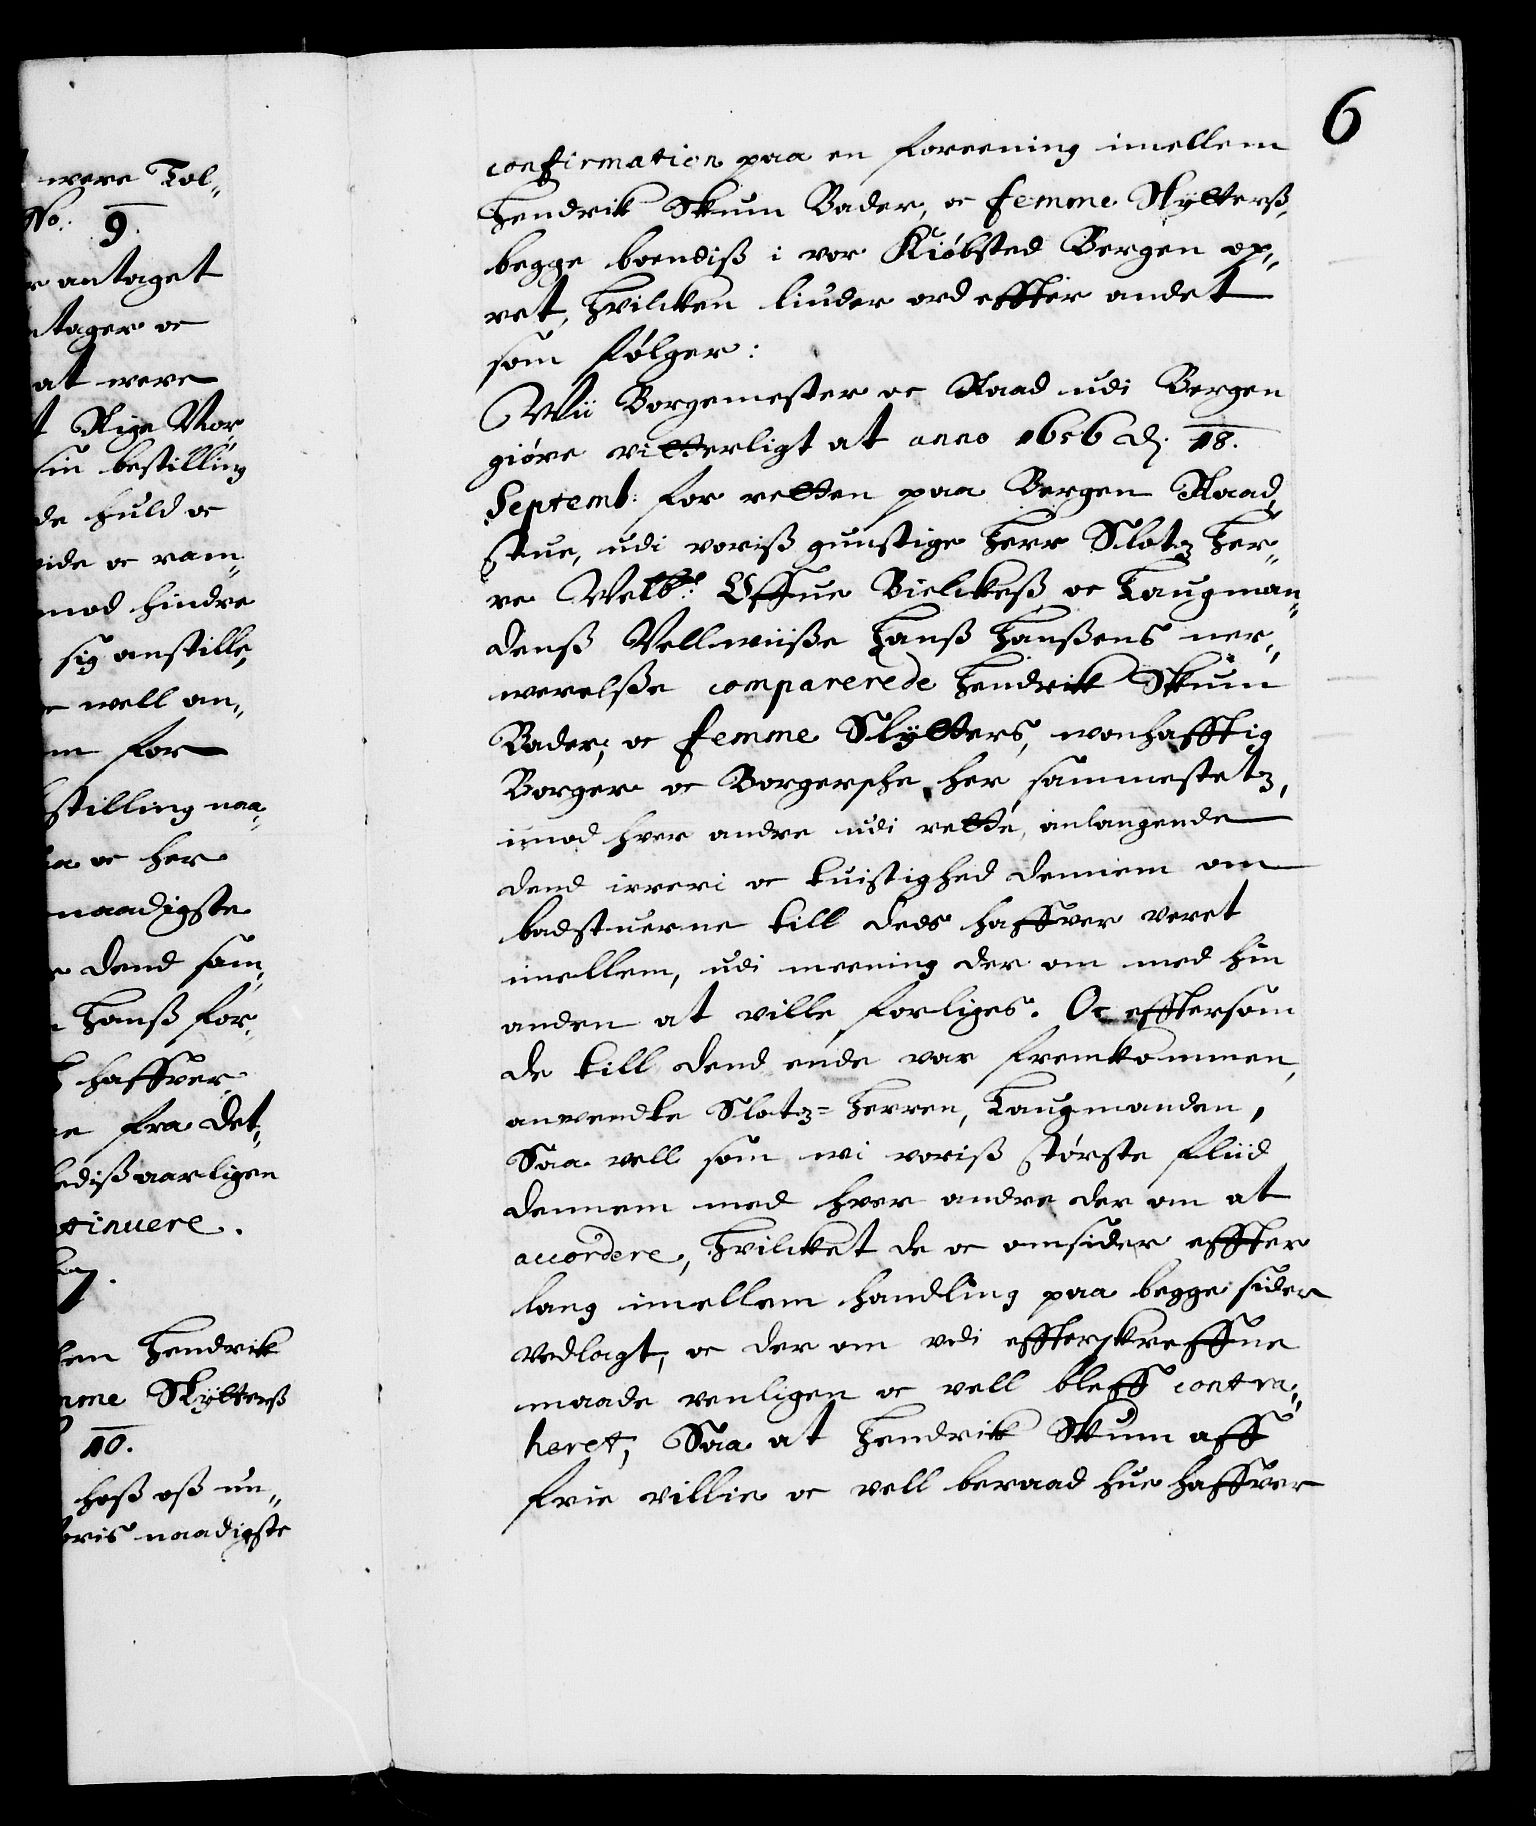 were Tol„
No. 9.
antaget
tager oc
at were
Rige Nor„
sin bestilling
de huld oc
oc ram„
mod hindre
sig anstille,
well an„
for
stilling naa„
oc her
naadigste
dend sam„
Hanß for„
haffver
fra det„
aarligen
tinuere.
Hendrik
Skÿtterß
10.
hoß oß un„
naadigste
6
confirmation paa en foreening imellem
Hendrik Skum Bader, oc femme Skÿtterß,
begge boendiß i vor Kiøbsted Bergen op„
ret, Hvilcken liuder ord effter andet
som følger:
Wii Borgemester oc Raad udi Bergen
giøre vitterligt at anno 1656 d. 18.
Septemb: for retten paa Bergen Raad„
stue, udi voriß gunstige Herr Slotz Her„
re Welb: Offue Bielckeß oc Laugman„
denß Vellwiiße Hanß Hanßens ner„
werelße comparerede Hendrik Skum
Bader, oc femme Skÿtters, wonhafftig
Borger oc Borgersche her sammestetz,
imod hver andre udi rette, anlangende
dend irreri oc tuistighed dennem om
badstuerne till deds haffver veret
imellem, udi meening der om med hin
anden at ville forliges. Oc efftersom
de till dend ende var fremkommen,
anwendte Slotz=Herren, Laugmanden,
Saa vell som wi voriß største fliid
dennem med hver andre der om at
accordere, Hvilcket de oc omsider effter
lang imellem handling paa begge sider
vedlagt, oc der om udi effterskreffne
maade venligen oc vell bleff contra„
heret, Saa at Hendrik Skum aff
frie villie oc vell beraad hue haffver